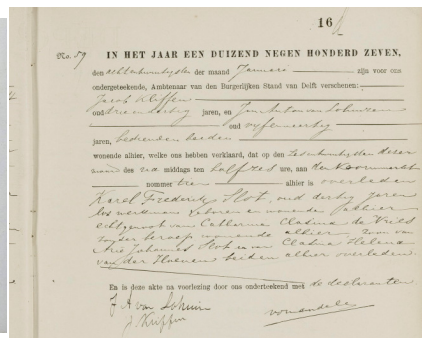 16
No. 59
IN HET JAAR EEN DUIZEND NEGEN HONDERD ZEVEN,
den achtentwintigsten der maand Januari zijn voor ons
ondergeteekende, Ambtenaar van den Burgerlijken Stand van Delft verschenen:
Jacob Kleffen
oud drie en dertig jaren, en Jan Anton van Lohuizen
oud vijf en veertig
jaren, bedienden beiden
wonende alhier, welke ons hebben verklaard, dat op den zesentwintigsten dezer
maand des na middags ten half zes ure, aan de Voormarkt
nommer tien alhier is overleden
Karel Frederik Slot, oud dertig jaren
los werkman geboren en wonende alhier
echtgenoot van Catharina Clasina de Vries
zonder beroep wonende alhier, zoon van
Arie Johannes Slot en van Clasina Helena
van der Hoeven beiden alhier overleden.
En is deze akte na voorlezing door ons onderteekend met de declaranten
J A van Lohuizen
J Kleffen